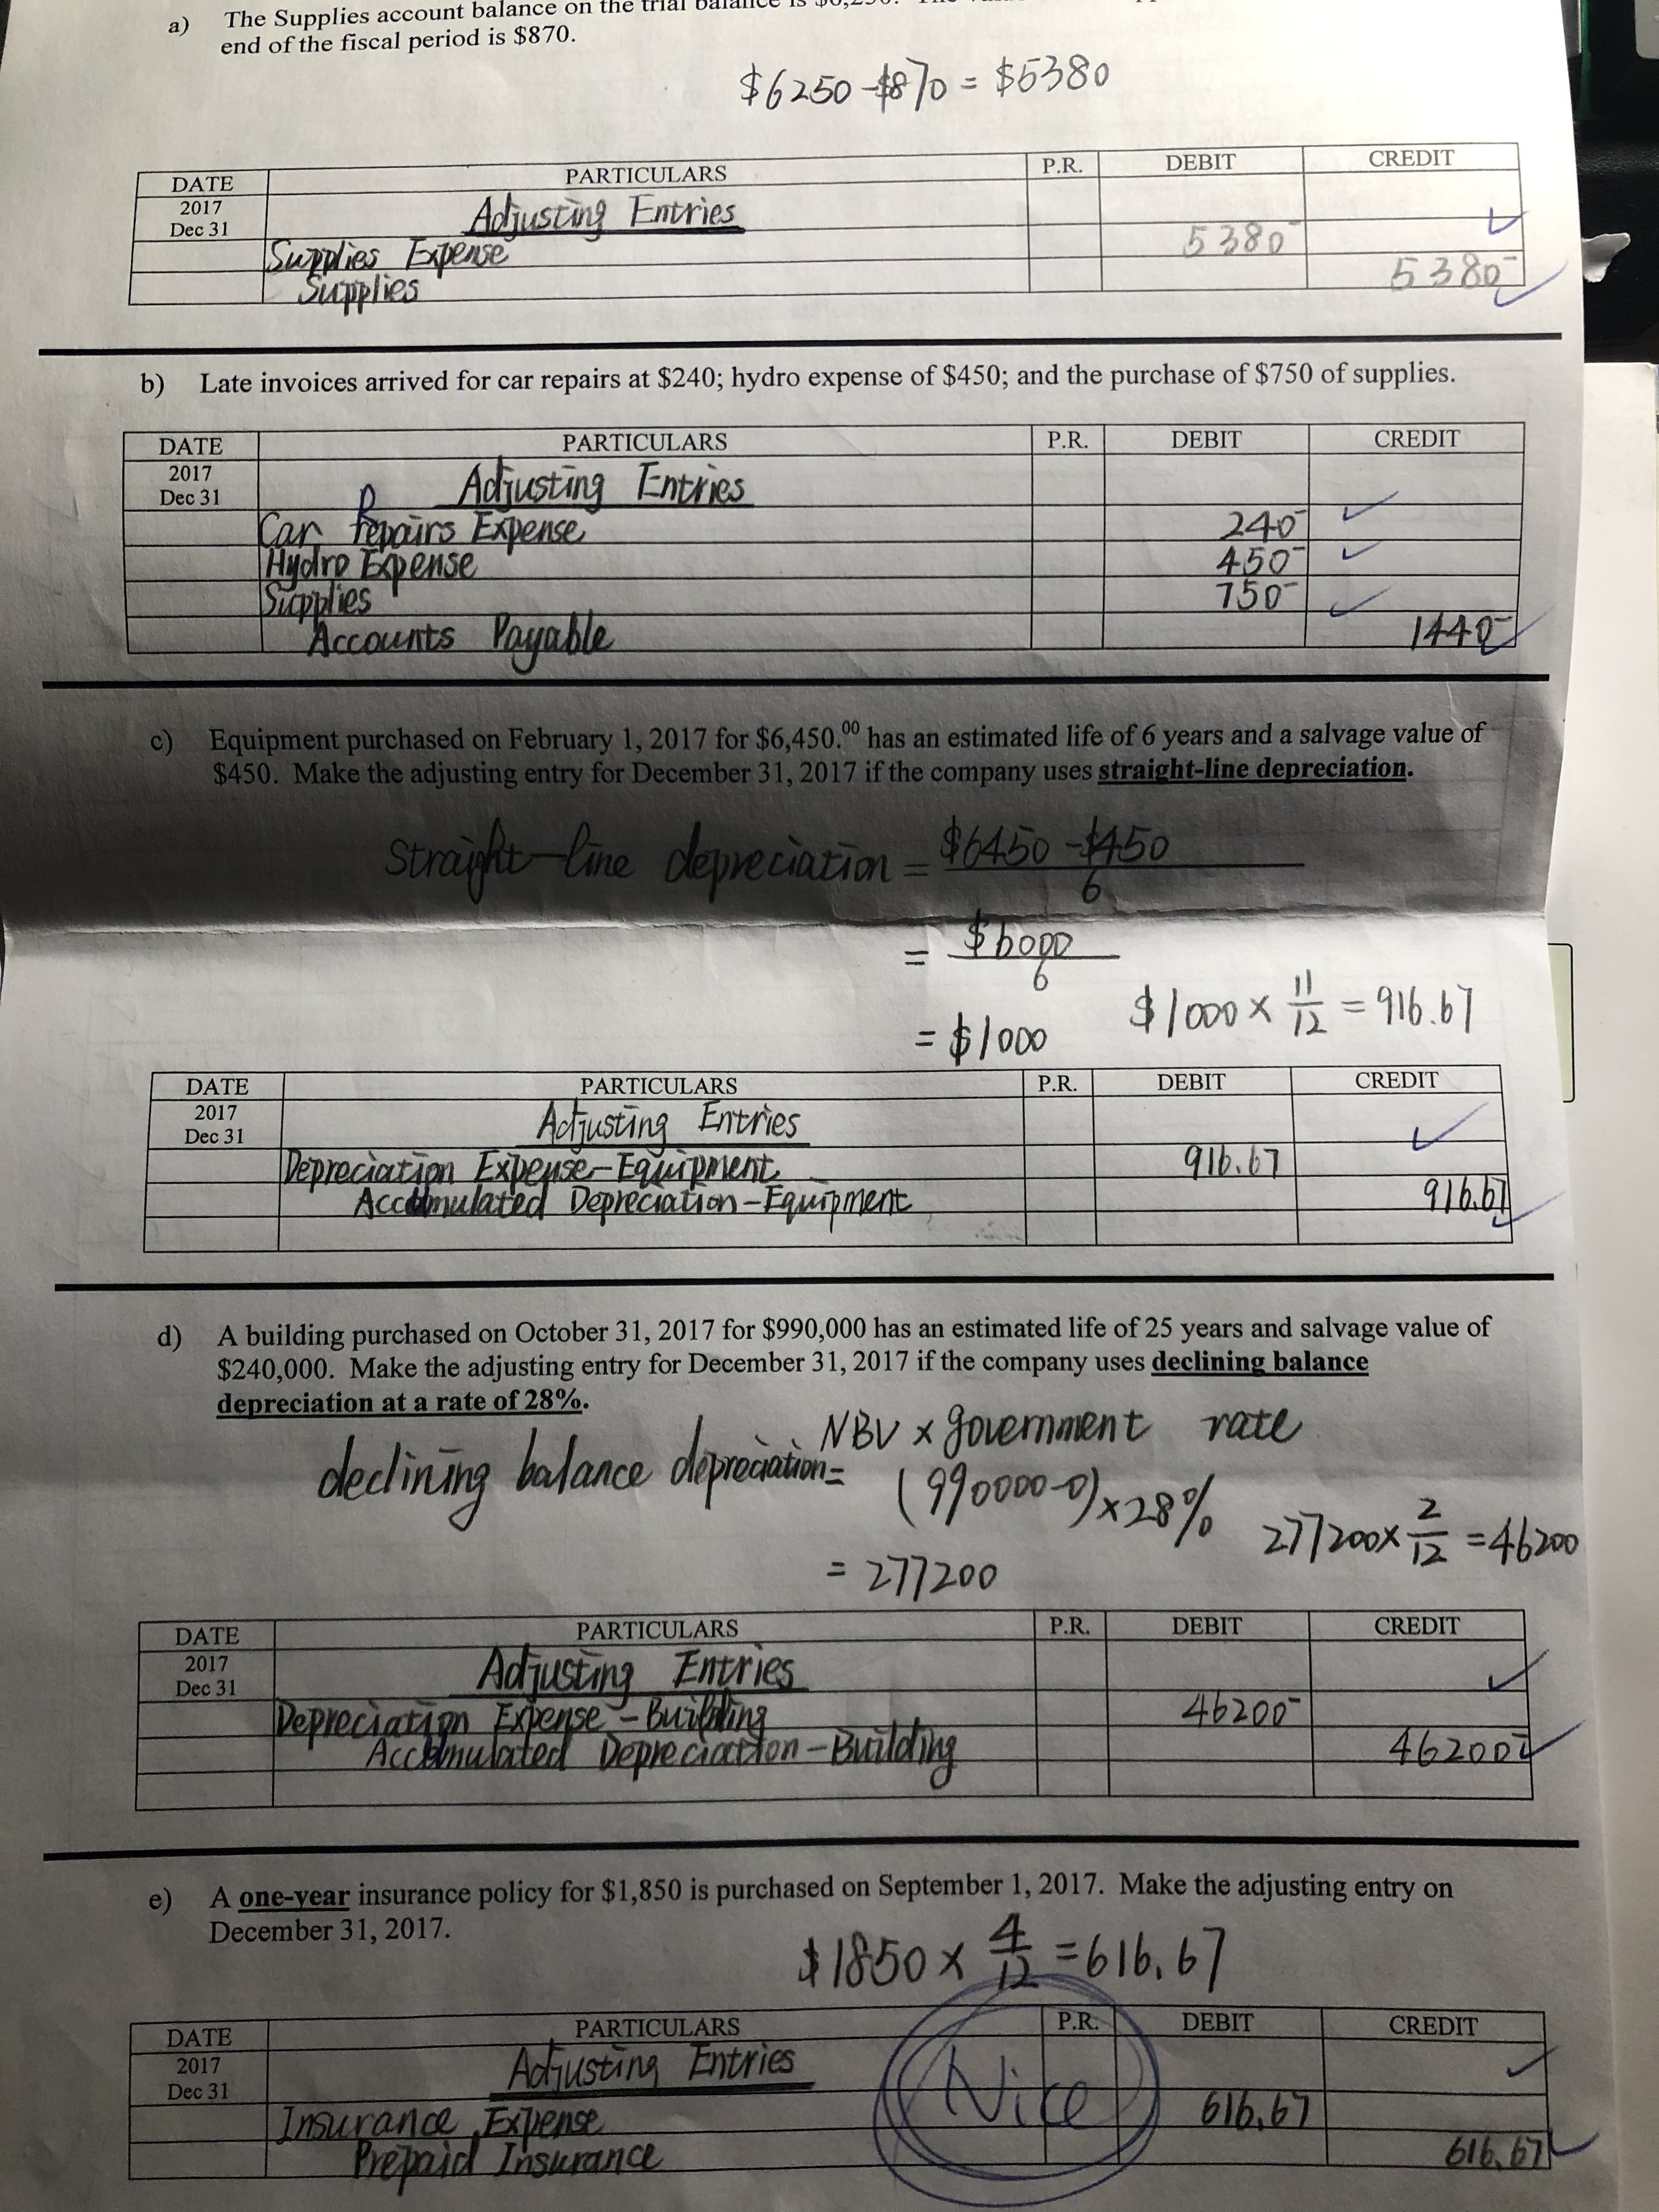 a) The Supplies account balance on the trial balance is $6,250.
end of the fiscal period is $870.
$6250-$870 = $5380
DATE PARTICULARS P.R. DEBIT CREDIT
2017
Dec 31 Adjusting Entries
Supplies Expense 5380-
Supplies 5380-
b) Late invoices arrived for car repairs at $240; hydro expense of $450; and the purchase of $750 of supplies.
DATE PARTICULARS P.R. DEBIT CREDIT
2017
Dec 31 Adjusting Entries
Car Repairs Expense 240-
Hydro Expense 450-
Supplies 750-
Accounts Payable 1440-
c) Equipment purchased on February 1, 2017 for $6,450.00 has an estimated life of 6 years and a salvage value of
$450. Make the adjusting entry for December 31, 2017 if the company uses straight-line depreciation.
Straight-line depreciation = $6450-$450
6
= $6000
6
= $1000 $1000 × 11/12 = 916.67
DATE PARTICULARS P.R. DEBIT CREDIT
2017
Dec 31 Adjusting Entries
Depreciation Expense-Equipment 916.67
Accumulated Depreciation-Equipment 916.67
d) A building purchased on October 31, 2017 for $990,000 has an estimated life of 25 years and salvage value of
$240,000. Make the adjusting entry for December 31, 2017 if the company uses declining balance
depreciation at a rate of 28%.
declining balance depreciation= NBV × government rate
(990000-0)×28% 277200× 2/12 =46200
= 277200
DATE PARTICULARS P.R. DEBIT CREDIT
2017
Dec 31 Adjusting Entries
Depreciation Expense-Building 46200-
Accumulated Depreciation-Building 46200-
e) A one-year insurance policy for $1,850 is purchased on September 1, 2017. Make the adjusting entry on
December 31, 2017.
$1850 × 4/12 =616.67
DATE PARTICULARS P.R. DEBIT CREDIT
2017
Dec 31 Adjusting Entries
Nice
Insurance Expense 616.67
Prepaid Insurance 616.67